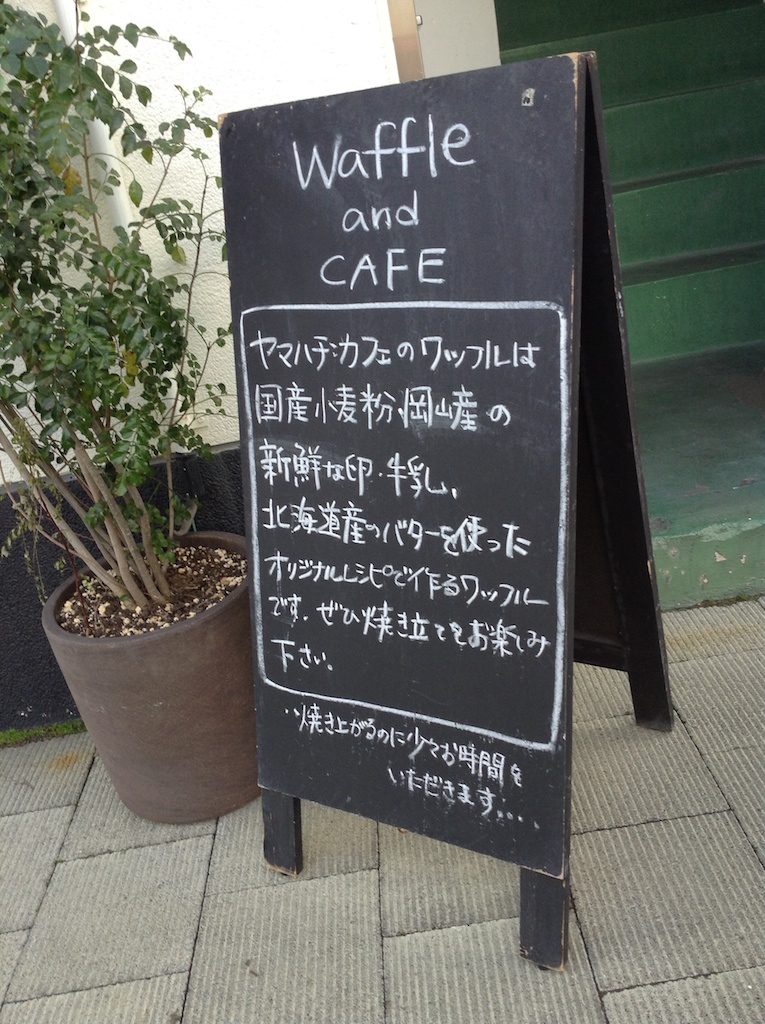 Waffle
and
CAFE
ヤマハチカフェのワッフルは
国産小麦粉、岡山産の
新鮮な印・牛乳、
北海道産のバターを使った
オリジナルレシピで作るワッフル
です。ぜひ焼き立てをお楽しみ
下さい。
焼き上がるのに少々お時間を
いただきます....